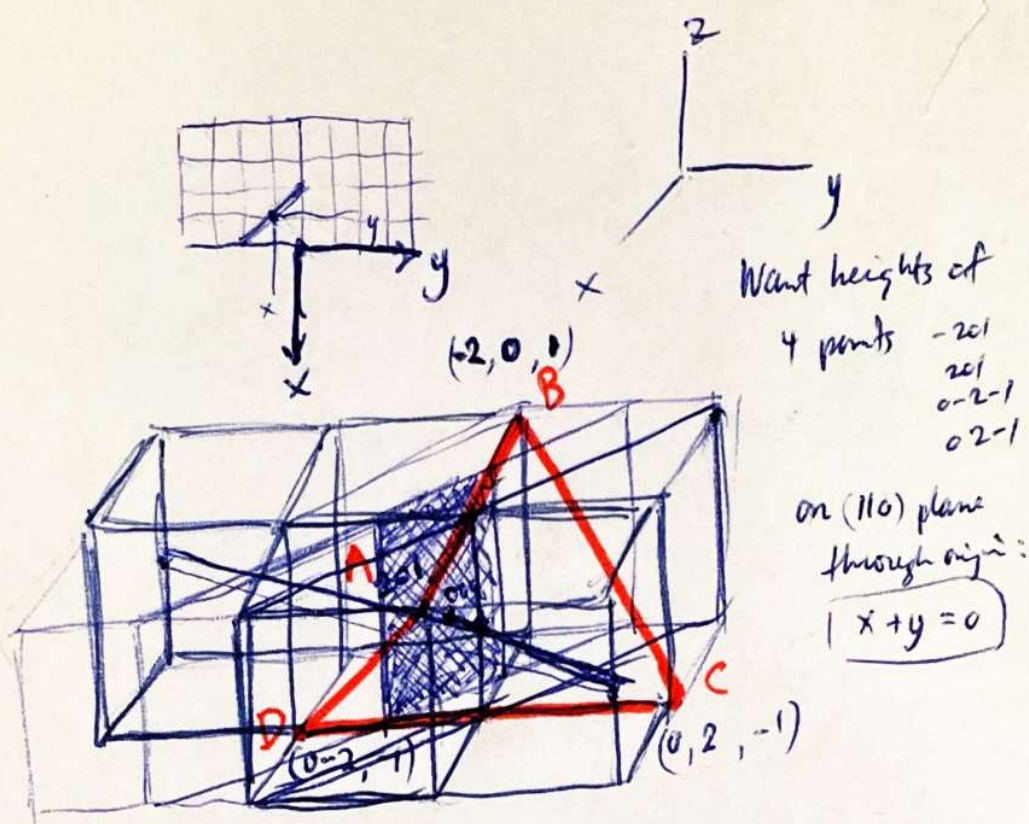 z
y
x
y
y
x
x
Want heights of
4 points
-201
201
0-2-1
02-1
(-2, 0, 1)
B
on (110) plane
through origin:
x + y = 0
A
201
C
D
(0-2, -1)
(0, 2, -1)